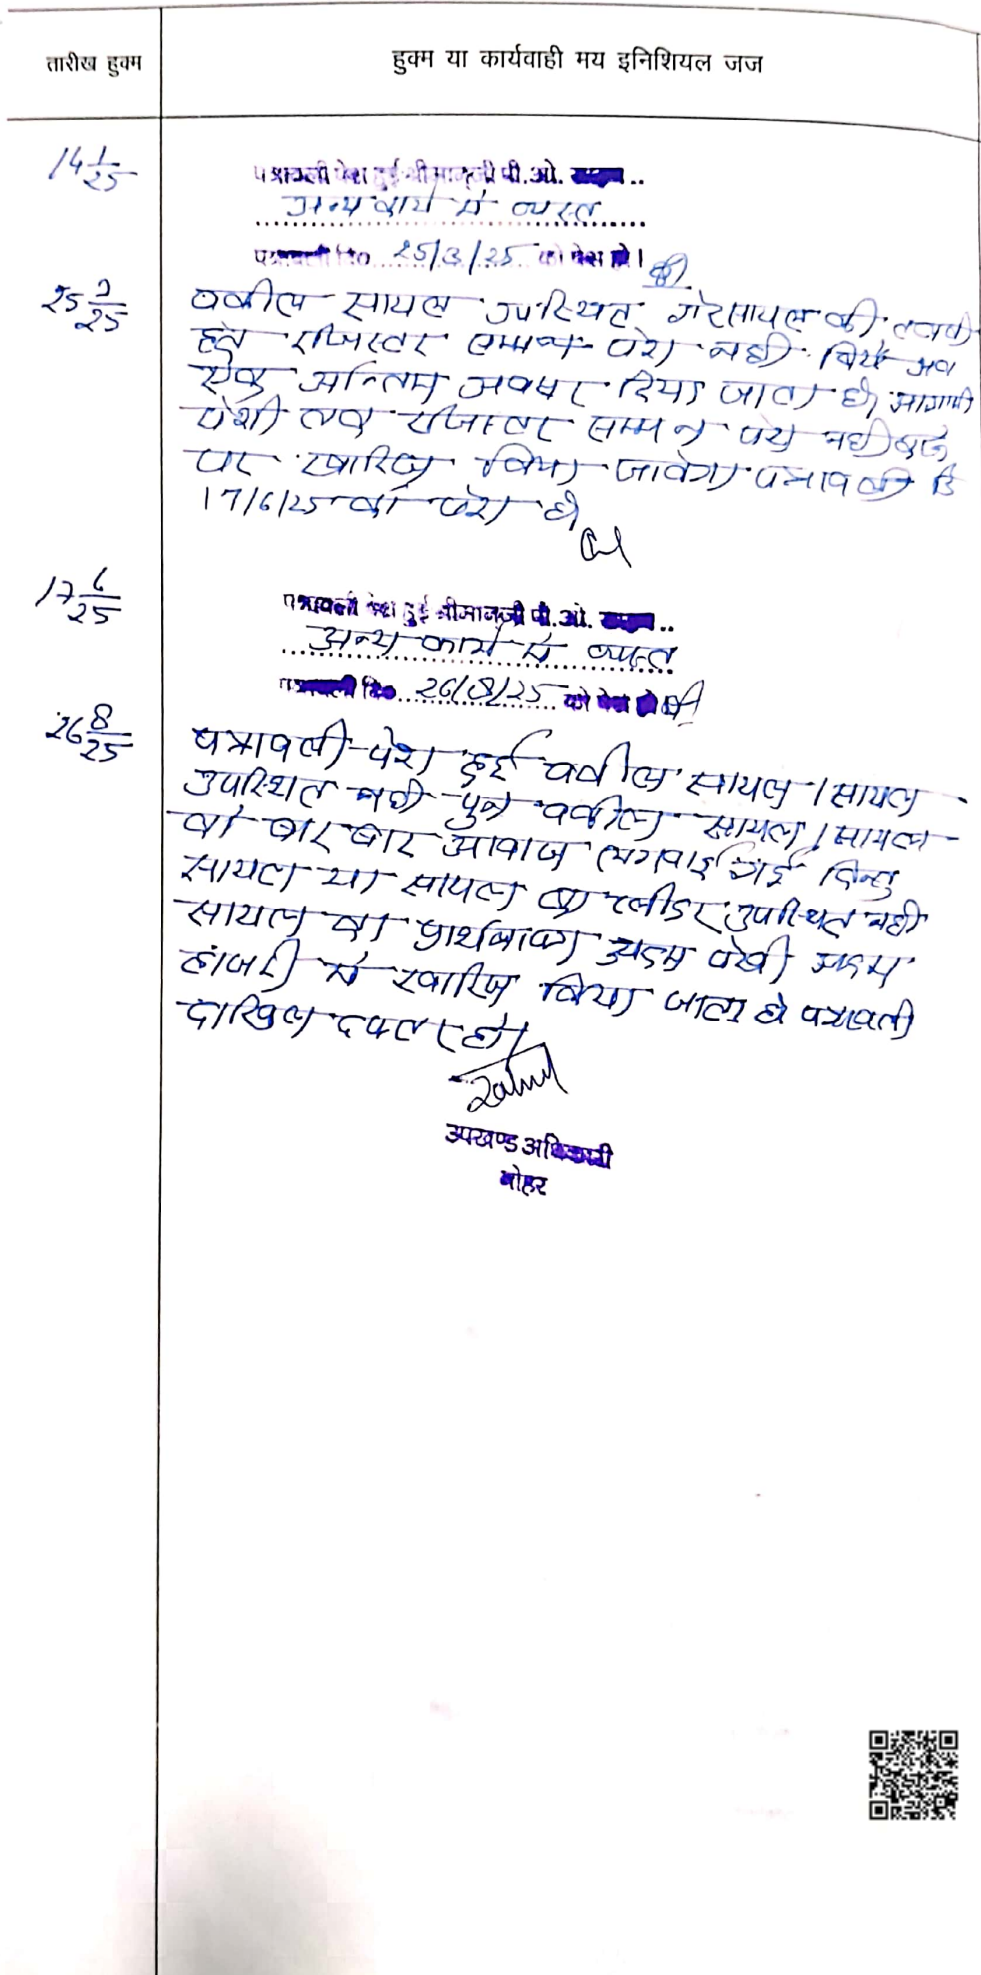 तारीख हुक्म
हुक्म या कार्यवाही मय इनिशियल जज
14 1/25
पत्रावली पेश हुई श्रीमानजी पी.ओ. ..
अन्य कार्य में व्यस्त
पत्रावली दि० 25/3/25 को पेश हो।
25 3/25
वकील सायल उपस्थित गैरसायल की तलबी
हेतु रजिस्टर सम्मन पेश नही किये अत
ऐक अन्तिम अवसर दिया जाता है। आगामी
पेशी तक रजिस्टर सम्मन पेश नही करने
पर खारिज किया जावेगा पत्रावली दि
17/6/25 को पेश हो
17 6/25
पत्रावली पेश हुई श्रीमानजी पी.ओ. ..
अन्य कार्य में व्यस्त
पत्रावली दि० 26/8/25 को पेश हो
26 8/25
पत्रावली पेश हुई वकील सायल / सायल
उपस्थित नही पुन वकील सायल / सायल
को बार बार आवाज लगवाई गई किन्तु
सायल या सायल का प्लीडर उपस्थित नही
सायल का प्रार्थनापत्र अदम पेरवी अदम
हाजरी में खारिज किया जाता है पत्रावली
दाखिल दफ्तर हो।
उपखण्ड अधिकारी